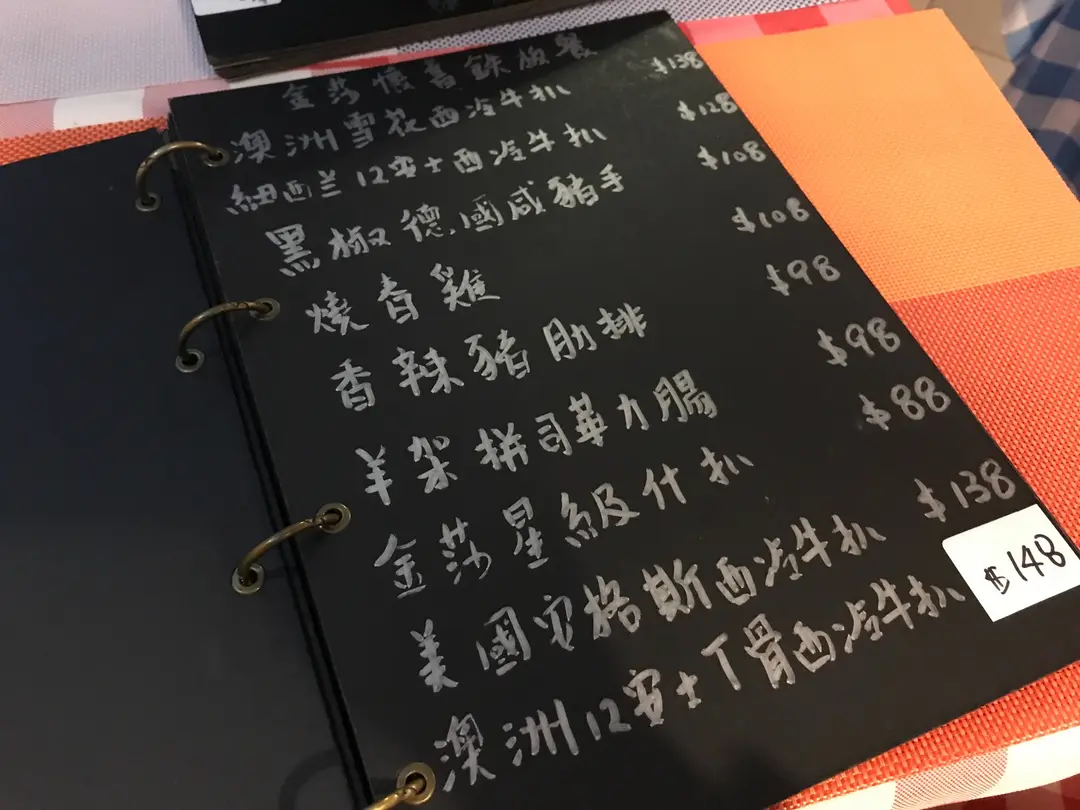 金莎懷舊鉄板餐
澳洲雪花西冷牛扒 $138
紐西兰12安士西冷牛扒 $128
黑椒德國咸豬手 $108
燒香雞 $108
香辣豬肋排 $98
羊架拼司華力腸 $98
金莎星級什扒 $88
美國安格斯西冷牛扒 $138
澳洲12安士T骨西冷牛扒 $148